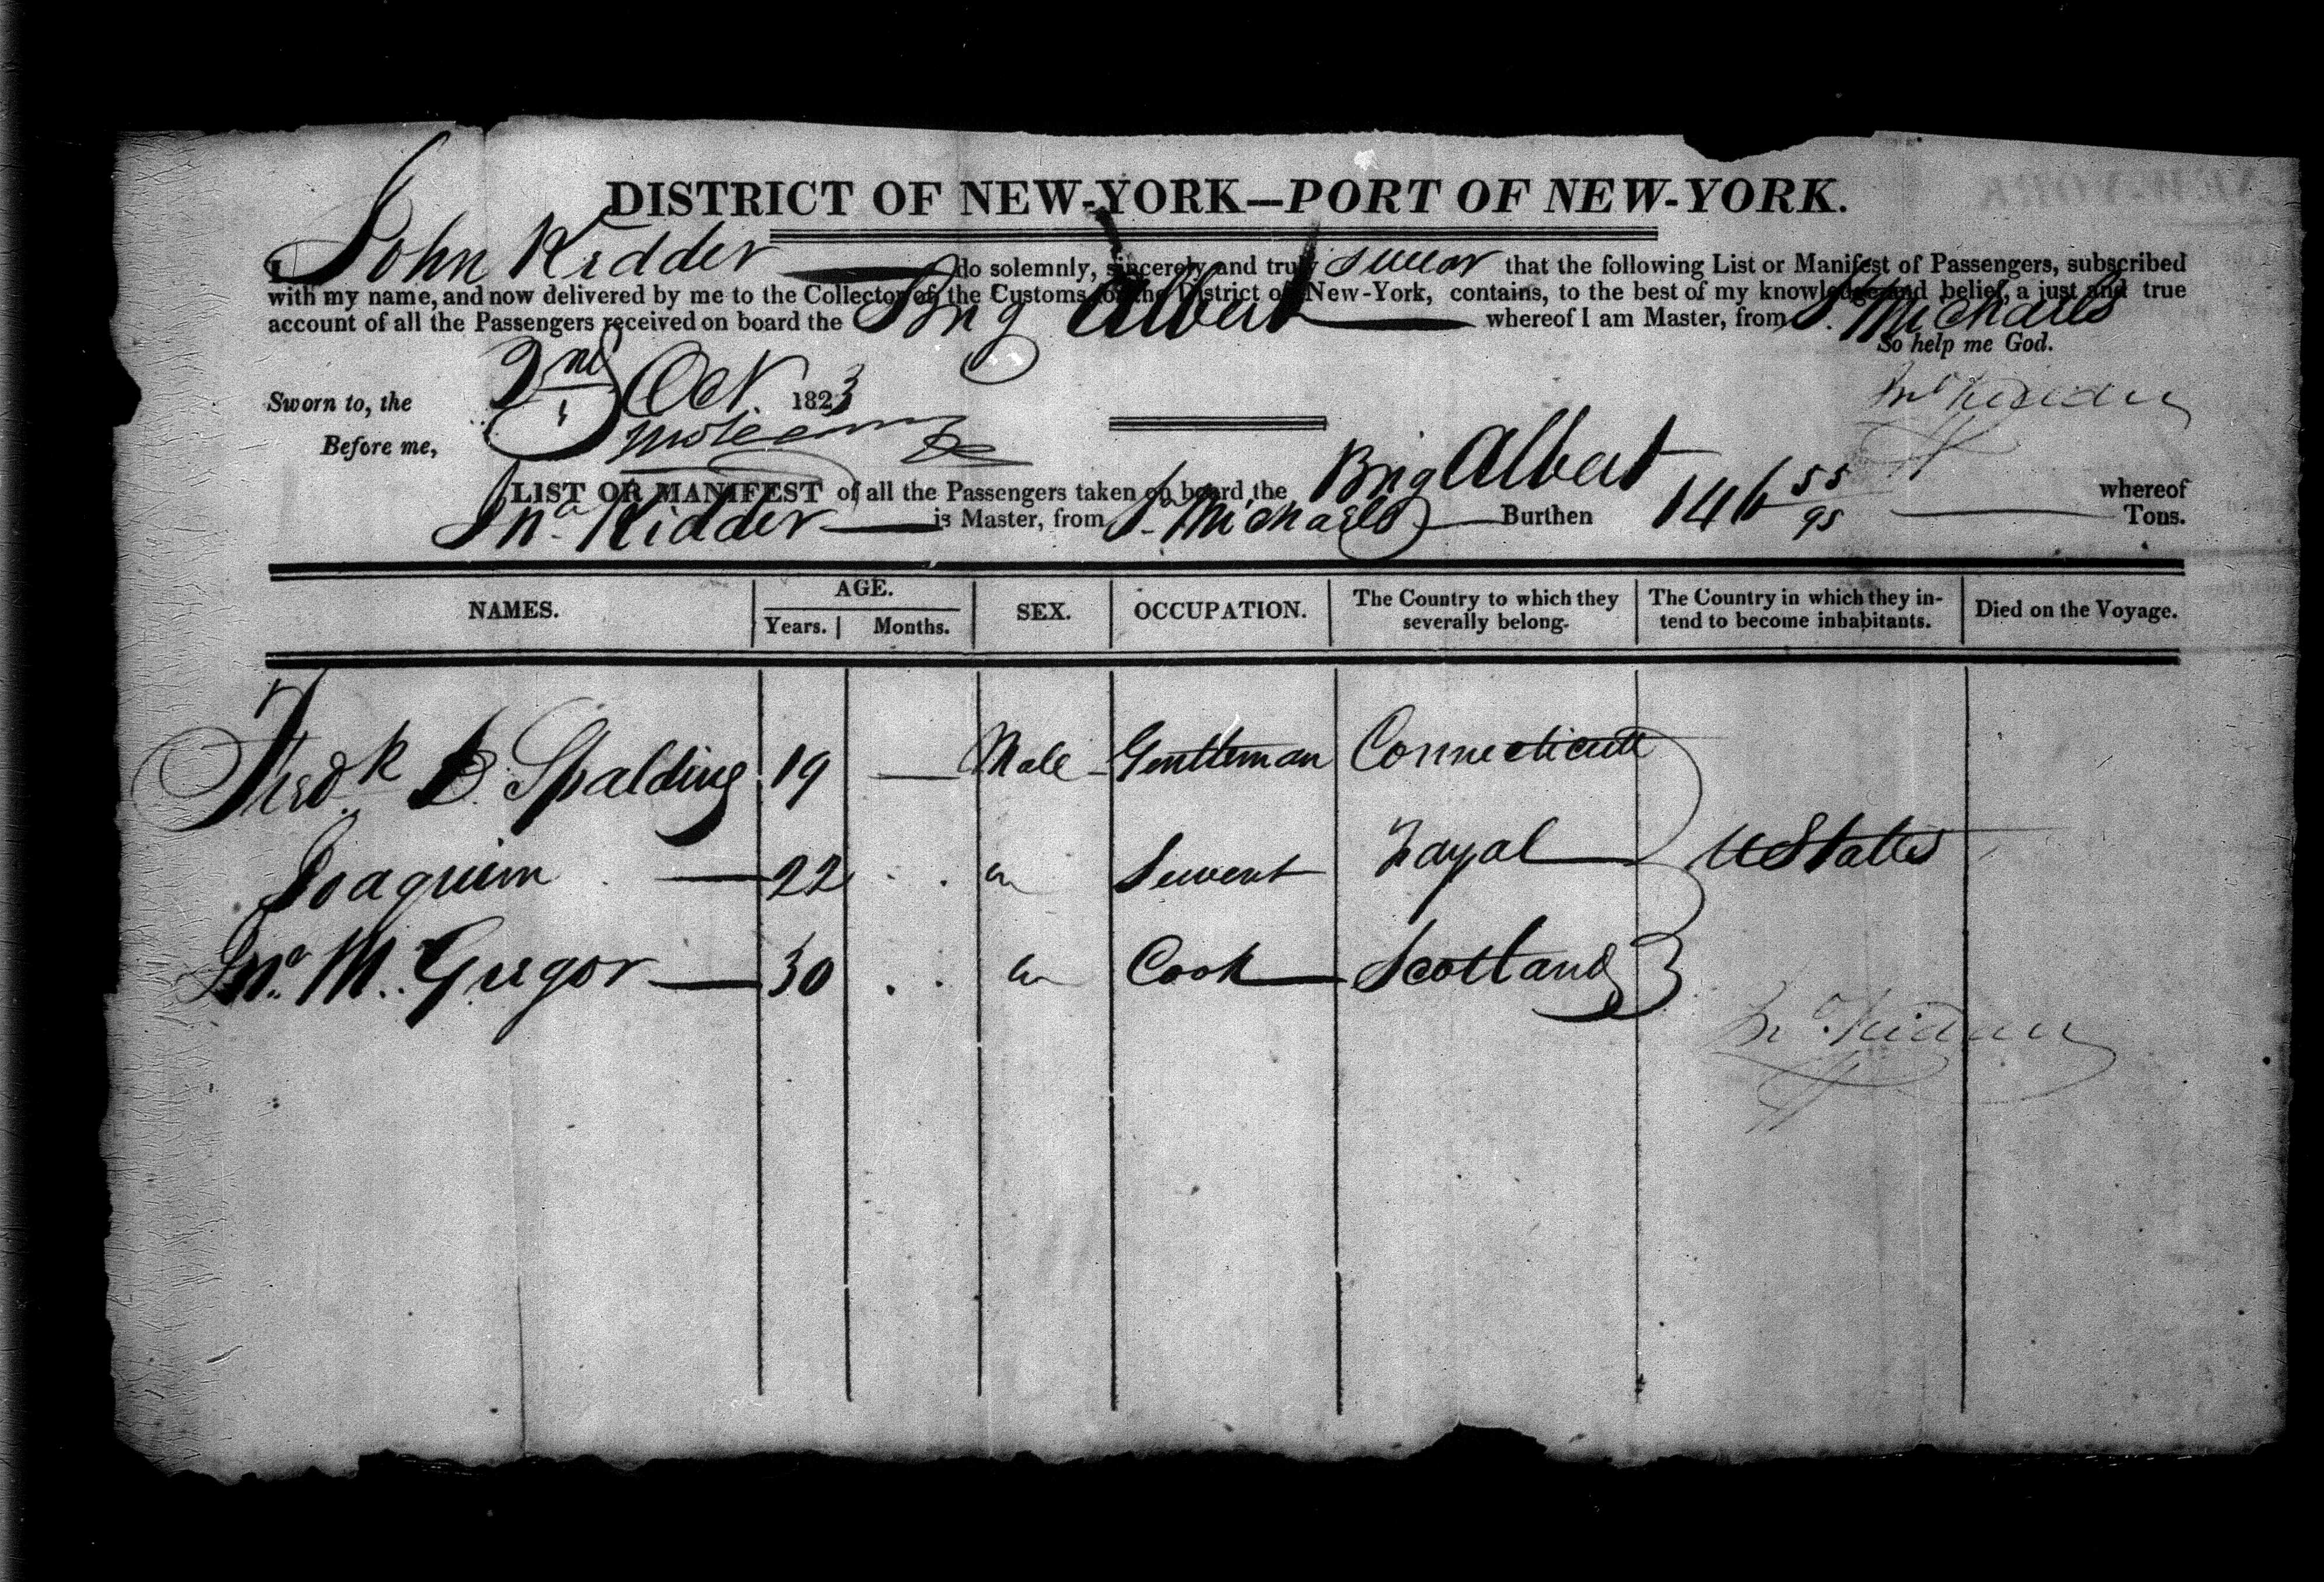 DISTRICT OF NEW-YORK—PORT OF NEW-YORK.
I, John Kidder do solemnly, sincerely and truly swear that the following List or Manifest of Passengers, subscribed
with my name, and now delivered by me to the Collector of the Customs for the District of New-York, contains, to the best of my knowledge and belief, a just and true
account of all the Passengers received on board the Brig Albert whereof I am Master, from St. Michaels
So help me God.
Sworn to, the 2nd Oct. 1823
Jno Kidder
Before me,
LIST OR MANIFEST of all the Passengers taken on board the Brig Albert whereof
Jno. Kidder is Master, from St. Michaels Burthen 146 55/95 Tons.
NAMES. AGE. Years. Months. SEX. OCCUPATION. The Country to which they severally belong. The Country in which they intend to become inhabitants. Died on the Voyage.
Fredk Spalding 19 — Male Gentleman Connecticutt
Joaquim 22 . . " Servent Fayal U States
Jno. Mc. Gregor 30 . . " Cook Scotland
Jno. Kidder